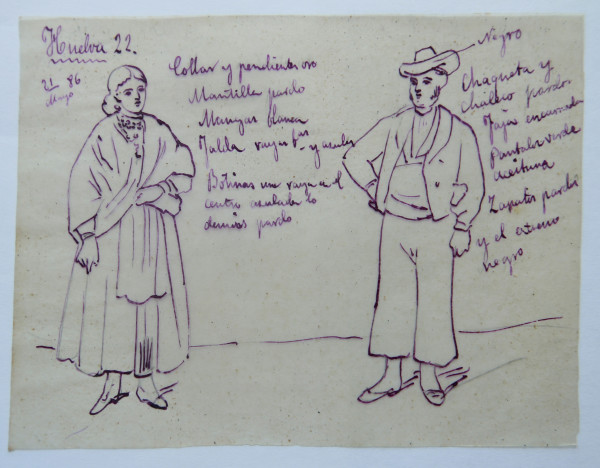 Huelva 22.
21 86
Mayo
Collar y pendientes oro
Mantilla pardo
Mangas blanca
Falda rayas y azules
Botinas una raya en el
centro azulada lo
demás pardo.
Negro
Chaqueta y
chaleco pardos
Faja encarnada
Pantalon verde
aceituna
Zapatos pardos
y el extremo
negro